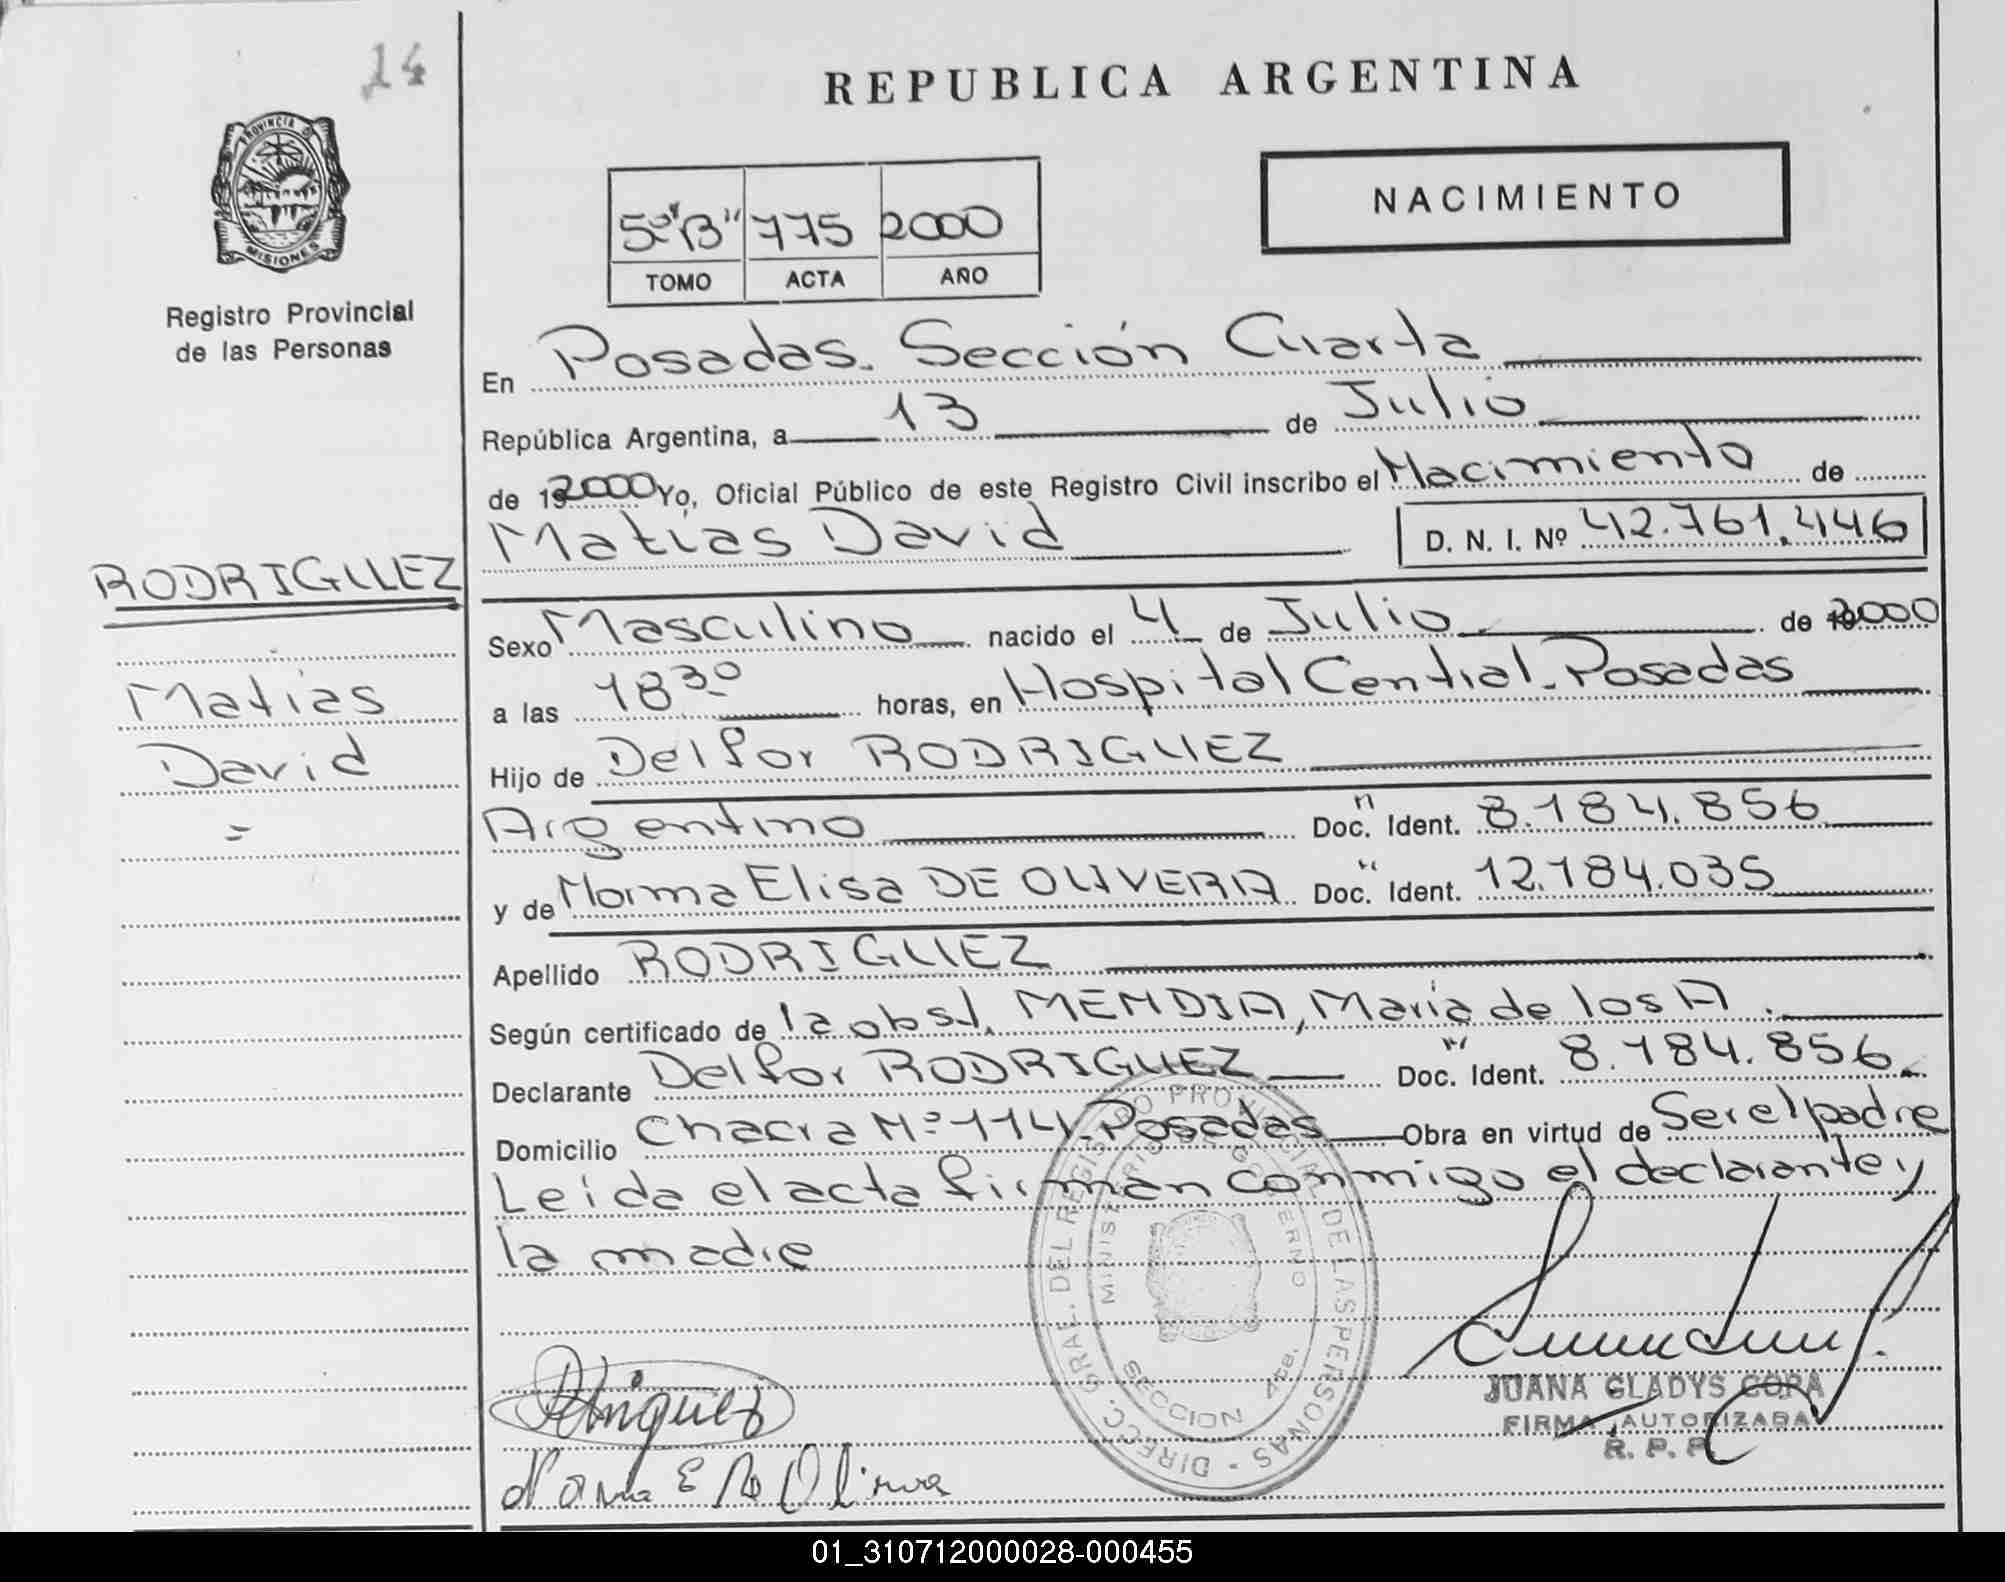 14
REPUBLICA ARGENTINA
PROVINCIA D
MISIONES
Registro Provincial
de las Personas
NACIMIENTO
5º "B" 775 2000
TOMO ACTA AÑO
En Posadas. Sección Cuarta
República Argentina, a 13 de Julio
de 192000 Yo, Oficial Público de este Registro Civil inscribo el Nacimiento de
Matías David D. N. I. Nº 42.761.446
RODRIGUEZ
Matías
David
=
Sexo Masculino nacido el 4 de Julio de 2000
a las 18 30 horas, en Hospital Central. Posadas
Hijo de Delfor RODRIGUEZ
Argentino Doc. Ident. 8.184.856
y de Norma Elisa DE OLIVERA Doc. Ident. 12.184.035
Apellido RODRIGUEZ
Según certificado de la obst. MENDIA, María de los A.
Declarante Delfor RODRIGUEZ Doc. Ident. 8.184.856
Domicilio Chacra Nº 114. Posadas Obra en virtud de Ser el padre
Leída el acta firman conmigo el declarante y
la madre
DIRECC. GRAL. DEL REGISTRO PROVINCIAL DE LAS PERSONAS -
MINISTERIO GOBIERNO
SECCION 4ta.
JUANA GLADYS COPA
FIRMA AUTORIZADA
R. P. P.
Norma E De Olivera
01_310712000028-000455